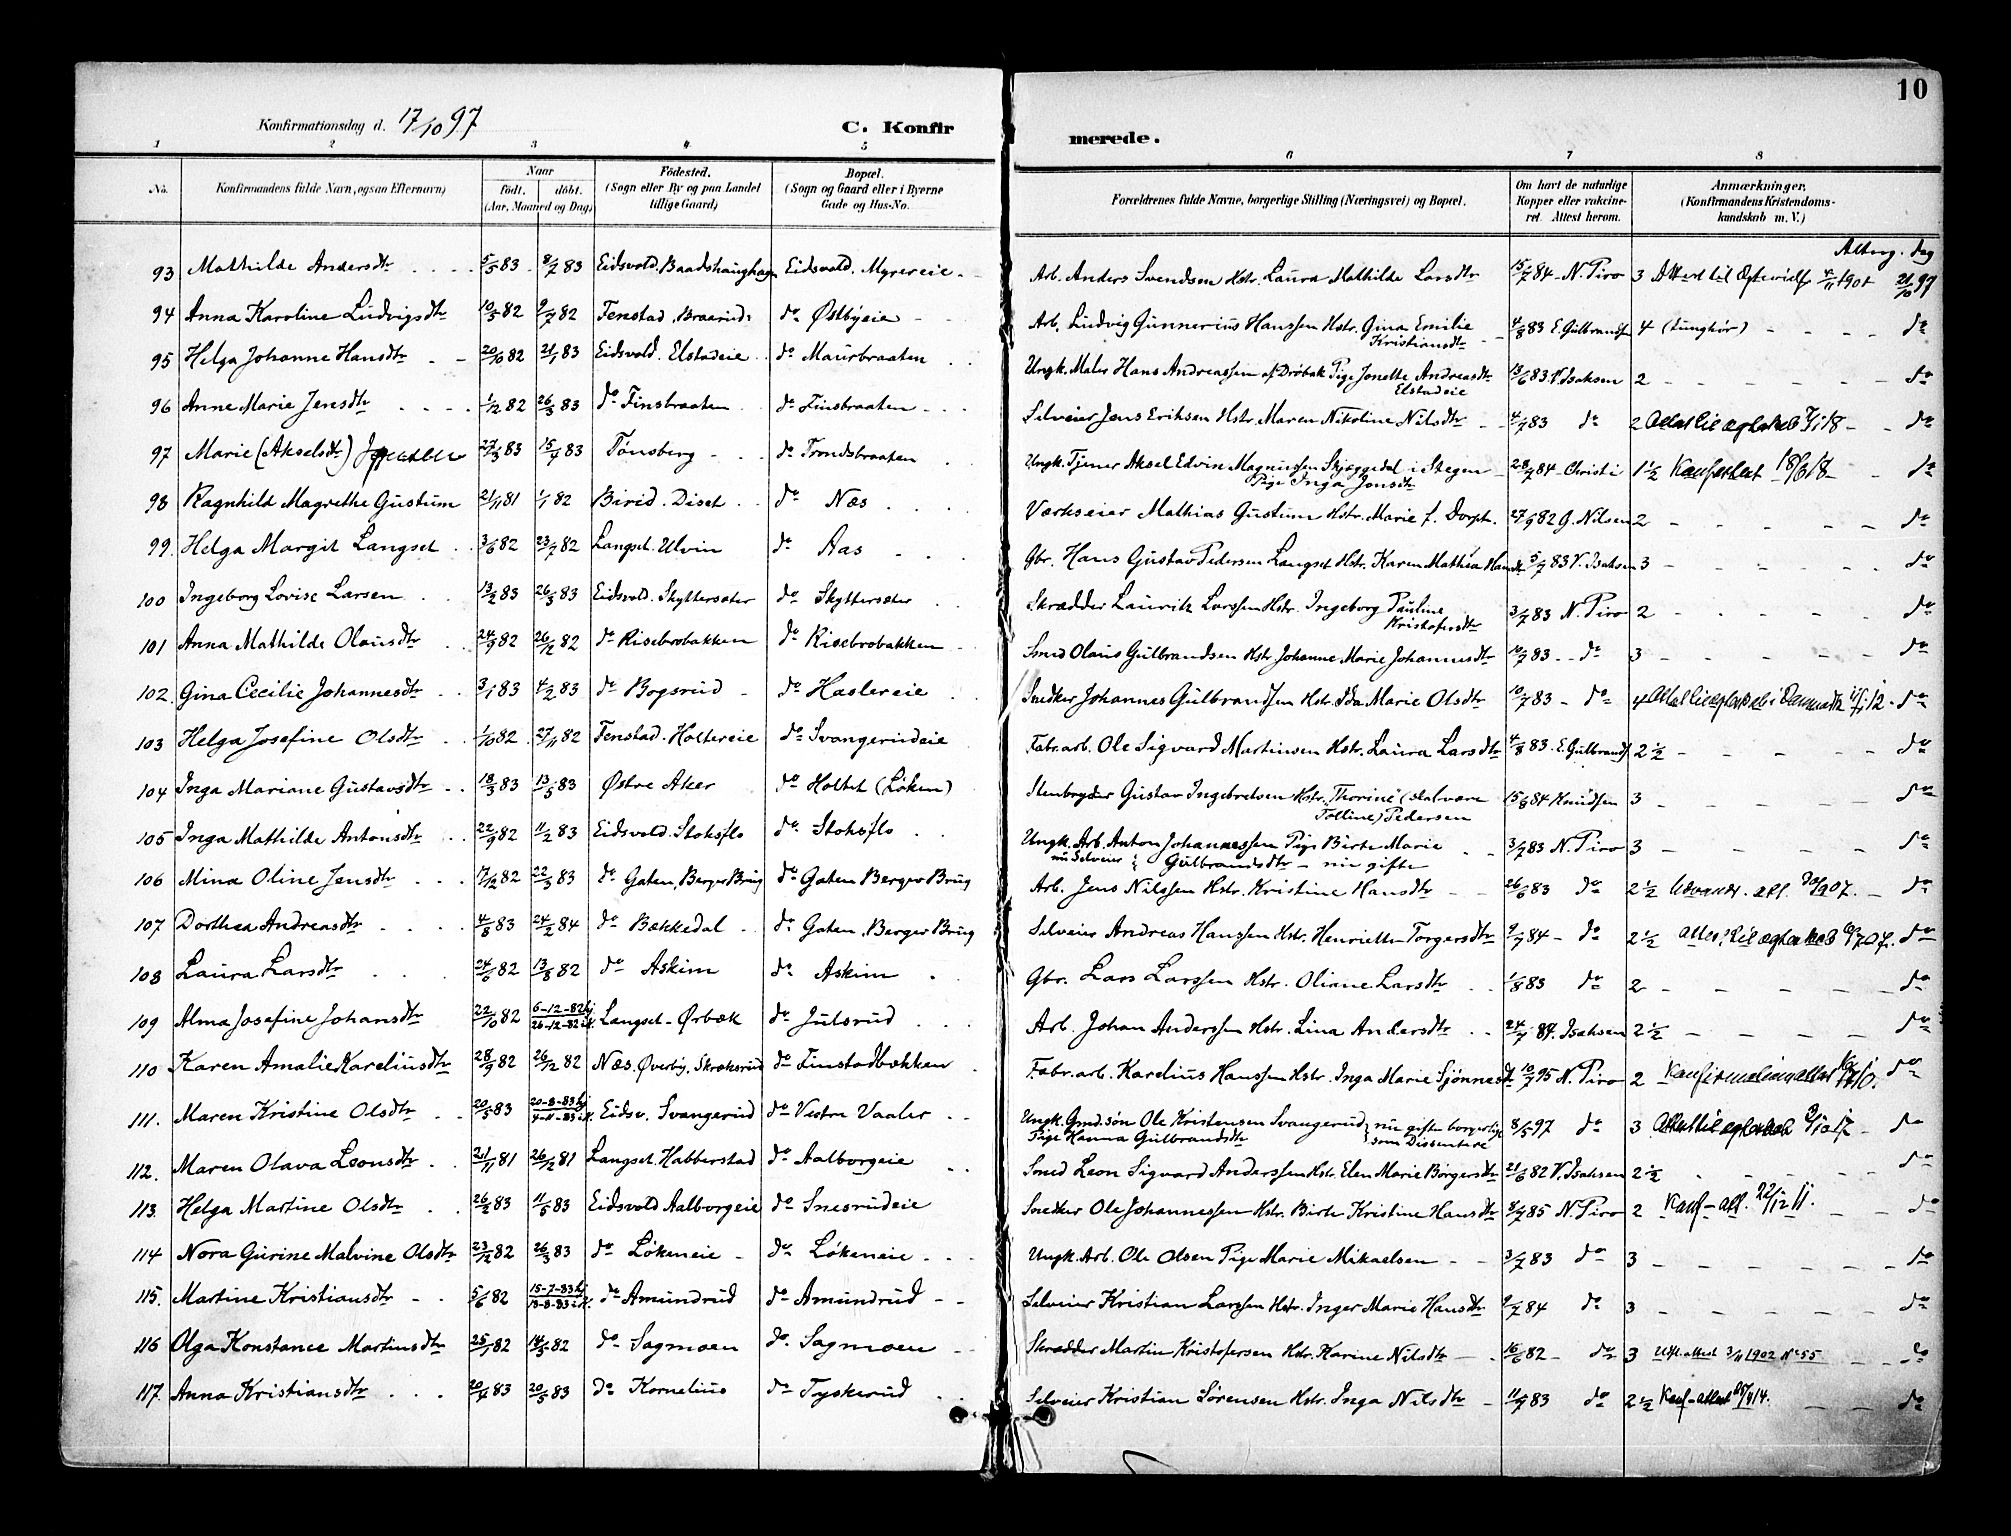 10
Konfirmationsdag d. 17/10 97
C. Konfirmerede.
1 2 3 4 5 6 7 8
No. Konfirmandens fulde Navn, ogsaa Efternavn) Naar født. døbt. (Aar, Maaned og Dag) Fødested. (Sogn eller By og paa Landet tillige Gaard) Bopæl. (Sogn og Gaard eller i Byerne Gade og Hus-No. Forældrenes fulde Navne, borgerlige Stilling (Næringsvei) og Bopæl. Om havt de naturlige Kopper eller vaccineret. Attest herom. Anmærkninger, (Konfirmandens Kristendomskundskab m. V.)
Altерg. dag
93 Mathilde Andersdtr 5/5 83 8/7 83 Eidsvold. Baadshaughagen Eidsvold. Myrereie Arb. Anders Svendsen Hstr. Laura Mathilde Larsdtr 15/7 84 N. Piro 3 21/10 97
94 Anna Karoline Ludvigsdtr 10/5 82 9/7 82 Fenstad. Braarud do Østbyeie Arb. Ludvig Gunnerius Hanssen Hstr. Gina Emilie Kristiansdtr 4/8 83 E. Gulbrandsen 4 (tunghør) do
95 Helga Johanne Hansdtr 20/10 82 21/1 83 Eidsvold. Elstadeie do Maurbraaten Ungk. Maler Hans Andreassen af Drøbak Pige Jonette Andreasdtr Elstadeie 13/6 83 V. Isaksen 2 do
96 Anne Marie Jensdtr 1/12 82 26/3 83 do Finsbraaten do Finsbraaten Selveier Jens Eriksen Hstr. Maren Nikoline Nilsdtr 4/7 83 do 2 do
97 Marie (Akselsdtr) 27/3 83 15/7 83 Tønsberg do Trondsbraaten Ungk. Tjener Aksel Edvin Magnussen Skjæggedal i Stegen Pige Inga Jonsdtr 28/7 84 Christi 1½ do
98 Ragnhild Magrethe Gustum 21/11 81 1/1 82 Birid. Diset do Næs Værkseier Mathias Gustum Hstr. Marie f. Dorph. 27/9 82 G. Nilsen 2 do
99. Helga Margit Langset 3/6 82 23/7 82 Langset. Ulvin do Aas Gbr. Hans Gustav Pedersen Langset Hstr. Karen Mathea Hansdtr 5/7 83 V. Isaksen 3 do
100 Ingeborg Lovise Larsen 13/2 83 26/3 83 Eidsvold. Skyttersæter do Skyttersæter Skrædder Lauritz Larssen Hstr. Ingeborg Pauline Kristofersdtr 3/7 83 N. Piro 2 do
101 Anna Mathilde Olausdtr 24/9 82 26/12 82 do Risebrobakken do Risebrobakken Smed Olaus Gulbrandsen Hstr. Johanne Marie Johannesdtr 10/7 83 do 3 do
102 Gina Cecilie Johannesdtr 3/1 83 4/2 83 do Bogsrud do Haslereie Snedker Johannes Gulbrandsen Hstr. Ida Marie Olsdtr 10/7 83 do 4 do
103 Helga Josefine Olsdtr 1/10 82 27/11 82 Fenstad. Holtereie do Svangerudeie Fabr.arb. Ole Sigvard Martinsen Hstr. Laura Larsdtr 4/8 83 E. Gulbrands. 2½ do
104 Inga Mariane Gustavsdtr 18/3 83 13/5 83 Østre Aker do Holtet (Løken) Stenbryder Gustav Ingebretsen Hstr. Thorine (skal være Tolline) Pedersen 15/8 84 Knudsen 3 do
105 Inga Mathilde Antonsdtr 22/9 82 11/2 83 Eidsvold. Stoksflo do Stoksflo Ungk. Arb. Anton Johannessen Pige Birte Marie nu Selveier Gulbrandsdtr nu gifte 3/7 83 N. Piro 3 do
106 Mina Oline Jensdtr 17/12 82 22/3 83 do Gaten, Berger Brug do Gaten Berger Brug Arb. Jens Nilssen Hstr. Kristine Hansdtr 26/6 83 do 2½ Udvandr. att. do
107 Dorthea Andreasdtr 4/8 83 24/2 84 do Bækkedal do Gaten. Berger Brug Selveier Andreas Hanssen Hstr. Henriette Torgersdtr 9/7 84 do 2½ do
108 Laura Larsdtr 24/6 82 13/8 82 do Askim do Askim Gbr. Lars Larssen Hstr. Oliane Larsdtr 1/8 83 do 2 do
109 Alma Josefine Johansdtr 22/10 82 6-12-82 hj. 26-12-82 i K. Langset. Ørbæk do Julsrud Arb. Johan Anderssen Hstr. Lina Andersdtr 24/7 84. Isaksen 2½ do
110 Karen Amalie Kareliusdtr 28/9 82 26/12 82 Næs. Øverby, Skraksrud do Finstadbækken Fabr.arb. Karelius Hanssen Hstr. Inga Marie Sjønnesdtr 10/7 95 N. Piro 2 do
111. Maren Kristine Olsdtr 20/5 83 20-8-83 hj. 4-11-83 i K. Eidsv. Svangerud do Vestre Vaaler Ungk. Gmd.søn Ole Kristensen Svangerud Pige Hanna Gulbrandsdtr nu gifte borgerlige som Dissentere 8/5 97 do 3 do
112. Maren Olava Leonsdtr 21/11 81 26/12 81 Langset. Habberstad do Aalborgeie Smed Leon Sigvard Anderssen Hstr. Elen Marie Børgersdtr 21/6 82 V. Isaksen 2½ do
113. Helga Martine Olsdtr 26/2 83 11/5 83 Eidsvold Aalborgeie do Snesrudeie Snedker Ole Johannessen Hstr. Birte Kristine Hansdtr 8/7 85 N. Piro 2 Konf. att. 22/12 11. do
114 Nora Gurine Malvine Olsdtr 23/12 82 26/3 83 do Løkeneie do Løkeneie Ungk. Arb. Ole Olsen Pige Marie Mikaelsen 3/7 83 do 3 do
115. Martine Kristiansdtr 5/6 82 15-7-83 hj. 19-8-83 i K. do Amundrud do Amundrud Selveier Kristian Larssen Hstr. Inger Marie Hansdtr 9/7 84 do 3 do
116 Olga Konstance Martinsdtr 25/1 82 14/5 82 do Sagmoen do Sagmoen Skrædder Martin Kristofersen Hstr. Karine Nilsdtr 16/6 82 do 3 Utfl. attest 3/11 1902 No 55 do
117. Anna Kristiansdtr 20/4 83 20/5 83 do Kornelius do Tyskerud Selveier Kristian Sørensen Hstr. Inga Nilsdtr 11/7 83 do 2½ Konf-attest do